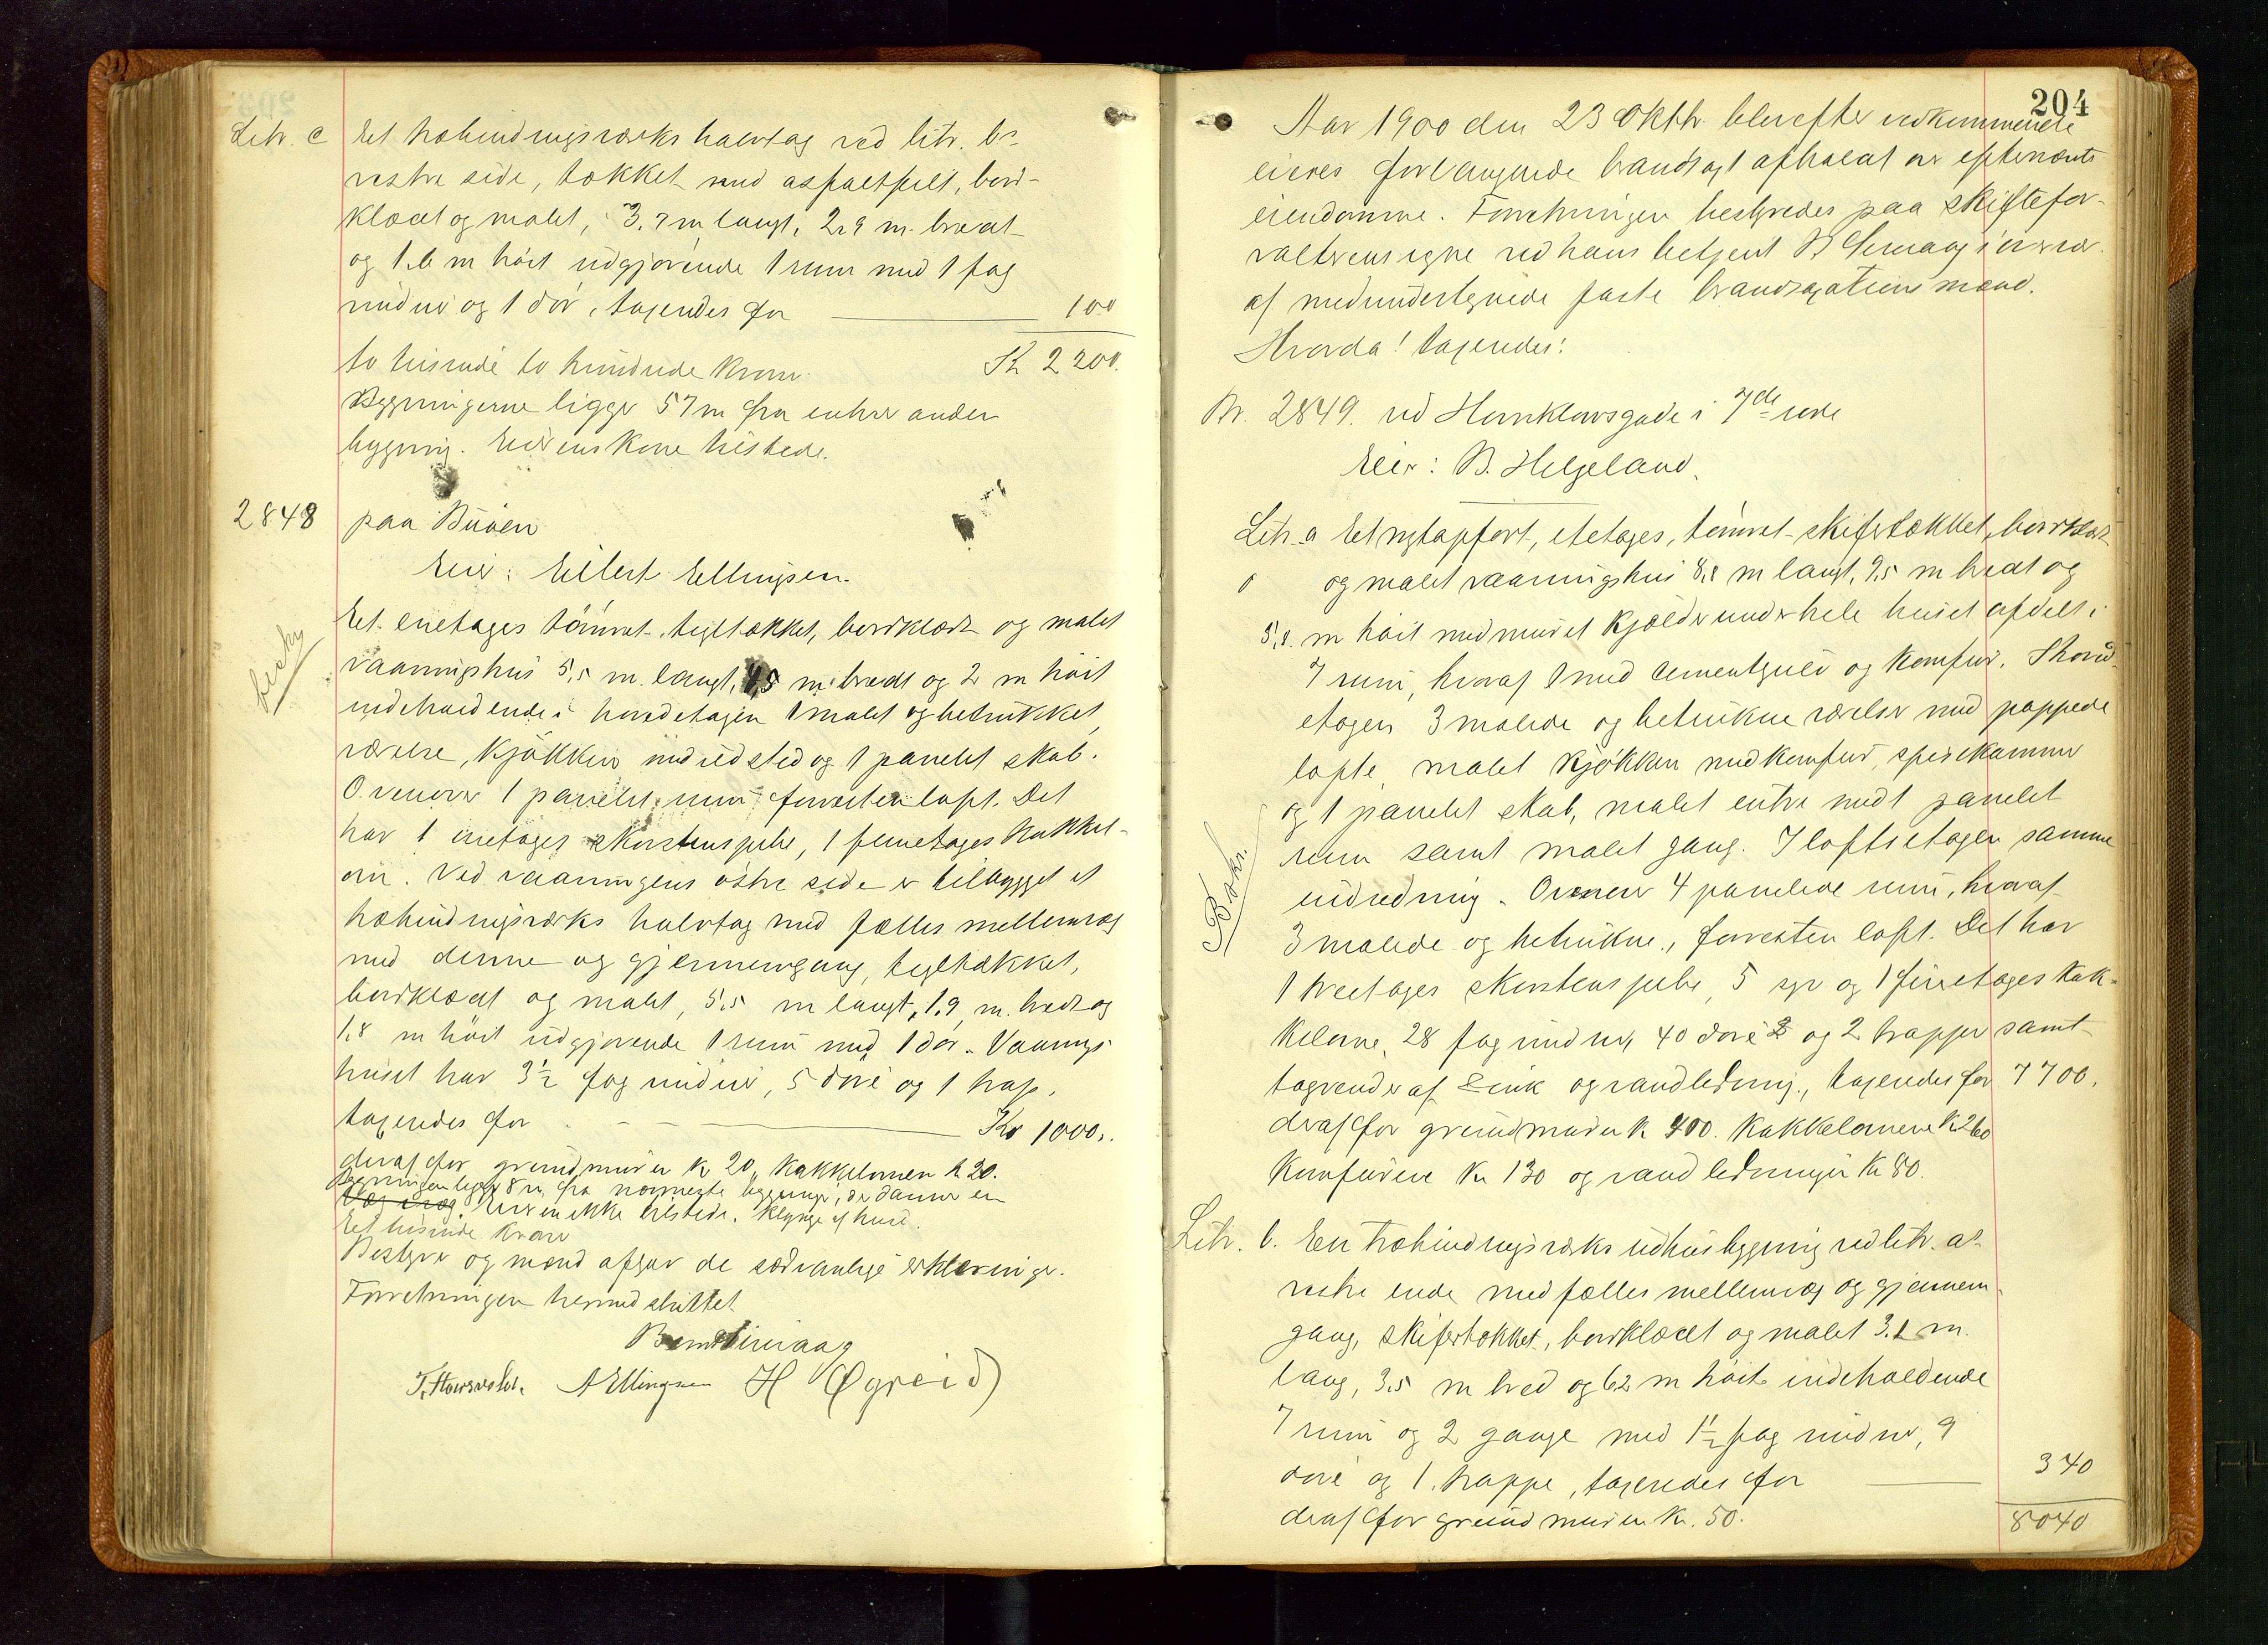 Litr. c Et træbindingsværks halvtag ved litr. b's
vestre side, tækket med asfaltfilt, bord-
klædt og malet, 3.7 m langt, 2,9 m. bredt
og 1.6 m høit udgjørende 1 rum med 1 fag
vinduer og 1 dør, taxeredes for 100
to tusinde to hundrede Kroner. Kr 2200.
Bygningerne ligger 57 m fra enhver anden
bygning. Eierens Kone tilstede.
2848 paa Buøen
Eier: Eilert Ellingsen.
Et enetages tømret, tegltækket, bordklædt og malet
vaaningshus 5,5 m. langt, m. bredt og 2 m høit
indeholdende i hovedetagen 1 malet og betrukket
værelse, Kjøkken med ildsted og 1 panelet skab.
Ovenover 1 panelet rum, forresten loft. Det
har 1 enetages skorstenspibe, 1 femetages Kakkel-
ovn. Ved vaaningens østre side er tilbygget et
træbindingsværks halvtag med fælles mellemvæg
med denne og gjennemgang, tegltækket,
bordklædt og malet, 5,5 m langt, 1,9 m. bredt og
1,8 m høit udgjørende 1 rum med 1 dør. Vaanings-
huset har 3 1/2 fag vinduer, 5 døre og 1 trap.
taxeredes for Kr 1000.
deraf for grundmuren Kr 20, Kakkelovnen Kr 20.
Bygningen ligger 8 m fra nærmeste bygninger, der danner en
Eieren ikke tilstede. Klynge af huse.
Et tusinde Kroner
Bestyrer og mænd afgav de sædvanlige erklæringer.
Forretningen hermed sluttet
Bernt
A Ellingsen H Øgreid
besky
204
Aar 1900 den 23 Oktbr. blev efter vedkommende
eieres forlangende brandtaxt afholdt over efternævnte
eiendomme. Forretningen bestyredes paa skiftefor-
valterens vegne ved hans betjent B i overvær
af medundertegnede faste brandtaxationsmænd.
Hvorda! taxeredes:
Nr. 2849. ved Hornklovsgade i 7de rode
Eier: B. Helgeland.
Litr. a Et nytopført, etetages, tømret, skifertækket, bordklædt
og malet vaaningshus 8,8 m langt, 9,5 m bredt og
5,8 m høit med muret Kjælder under hele huset afdelt i
7 rum, hvoraf 1 med cementgulv og Komfur. I hoved-
etagen 3 malede og betrukne værelser med pappede
lofte, malet Kjøkken med Komfur, spisekammer
og 1 panelet skab, malet entre med 1 panelet
rum samt malet gang. I loftsetagen samme
indredning. Ovenover 4 panelede rum, hvoraf
3 malede og betrukne, forresten loft. Det har
1 treetages skorstenspibe, 5 syv og 1 firetages Kak-
kelovne, 28 fag vinduer, 40 døre og 2 trapper samt
tagrender af Zink og vandledning, taxeredes for 7700.
deraf for grundmuren Kr 400. Kakkelovnene Kr 260
Komfurene Kr 130 og vandledningen Kr 80.
Beskr.
Litr. b. En træbindingsværks udhusbygning ved litr. a's
vestre ende med fælles mellemvæg og gjennem-
gang, skifertækket, bordklædt og malet 3.1 m.
lang, 3,5 m bred og 6.2 m høit indeholdende
7 rum og 2 gange med 1 1/2 fag vinduer, 9
døre og 1 trappe, taxeredes for 340
deraf for grundmuren Kr. 50. 8040